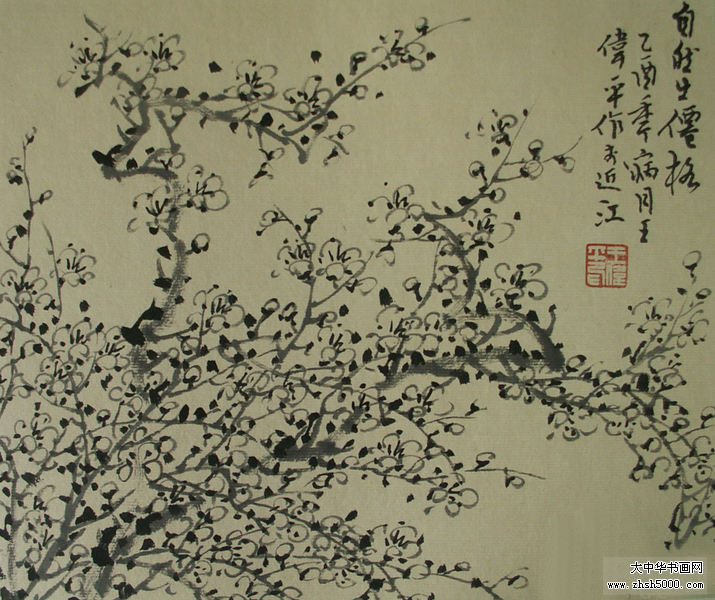 自然生僊格
乙酉季病月王
偉平作於近江
大中华书画网
www.zhsh5000.com